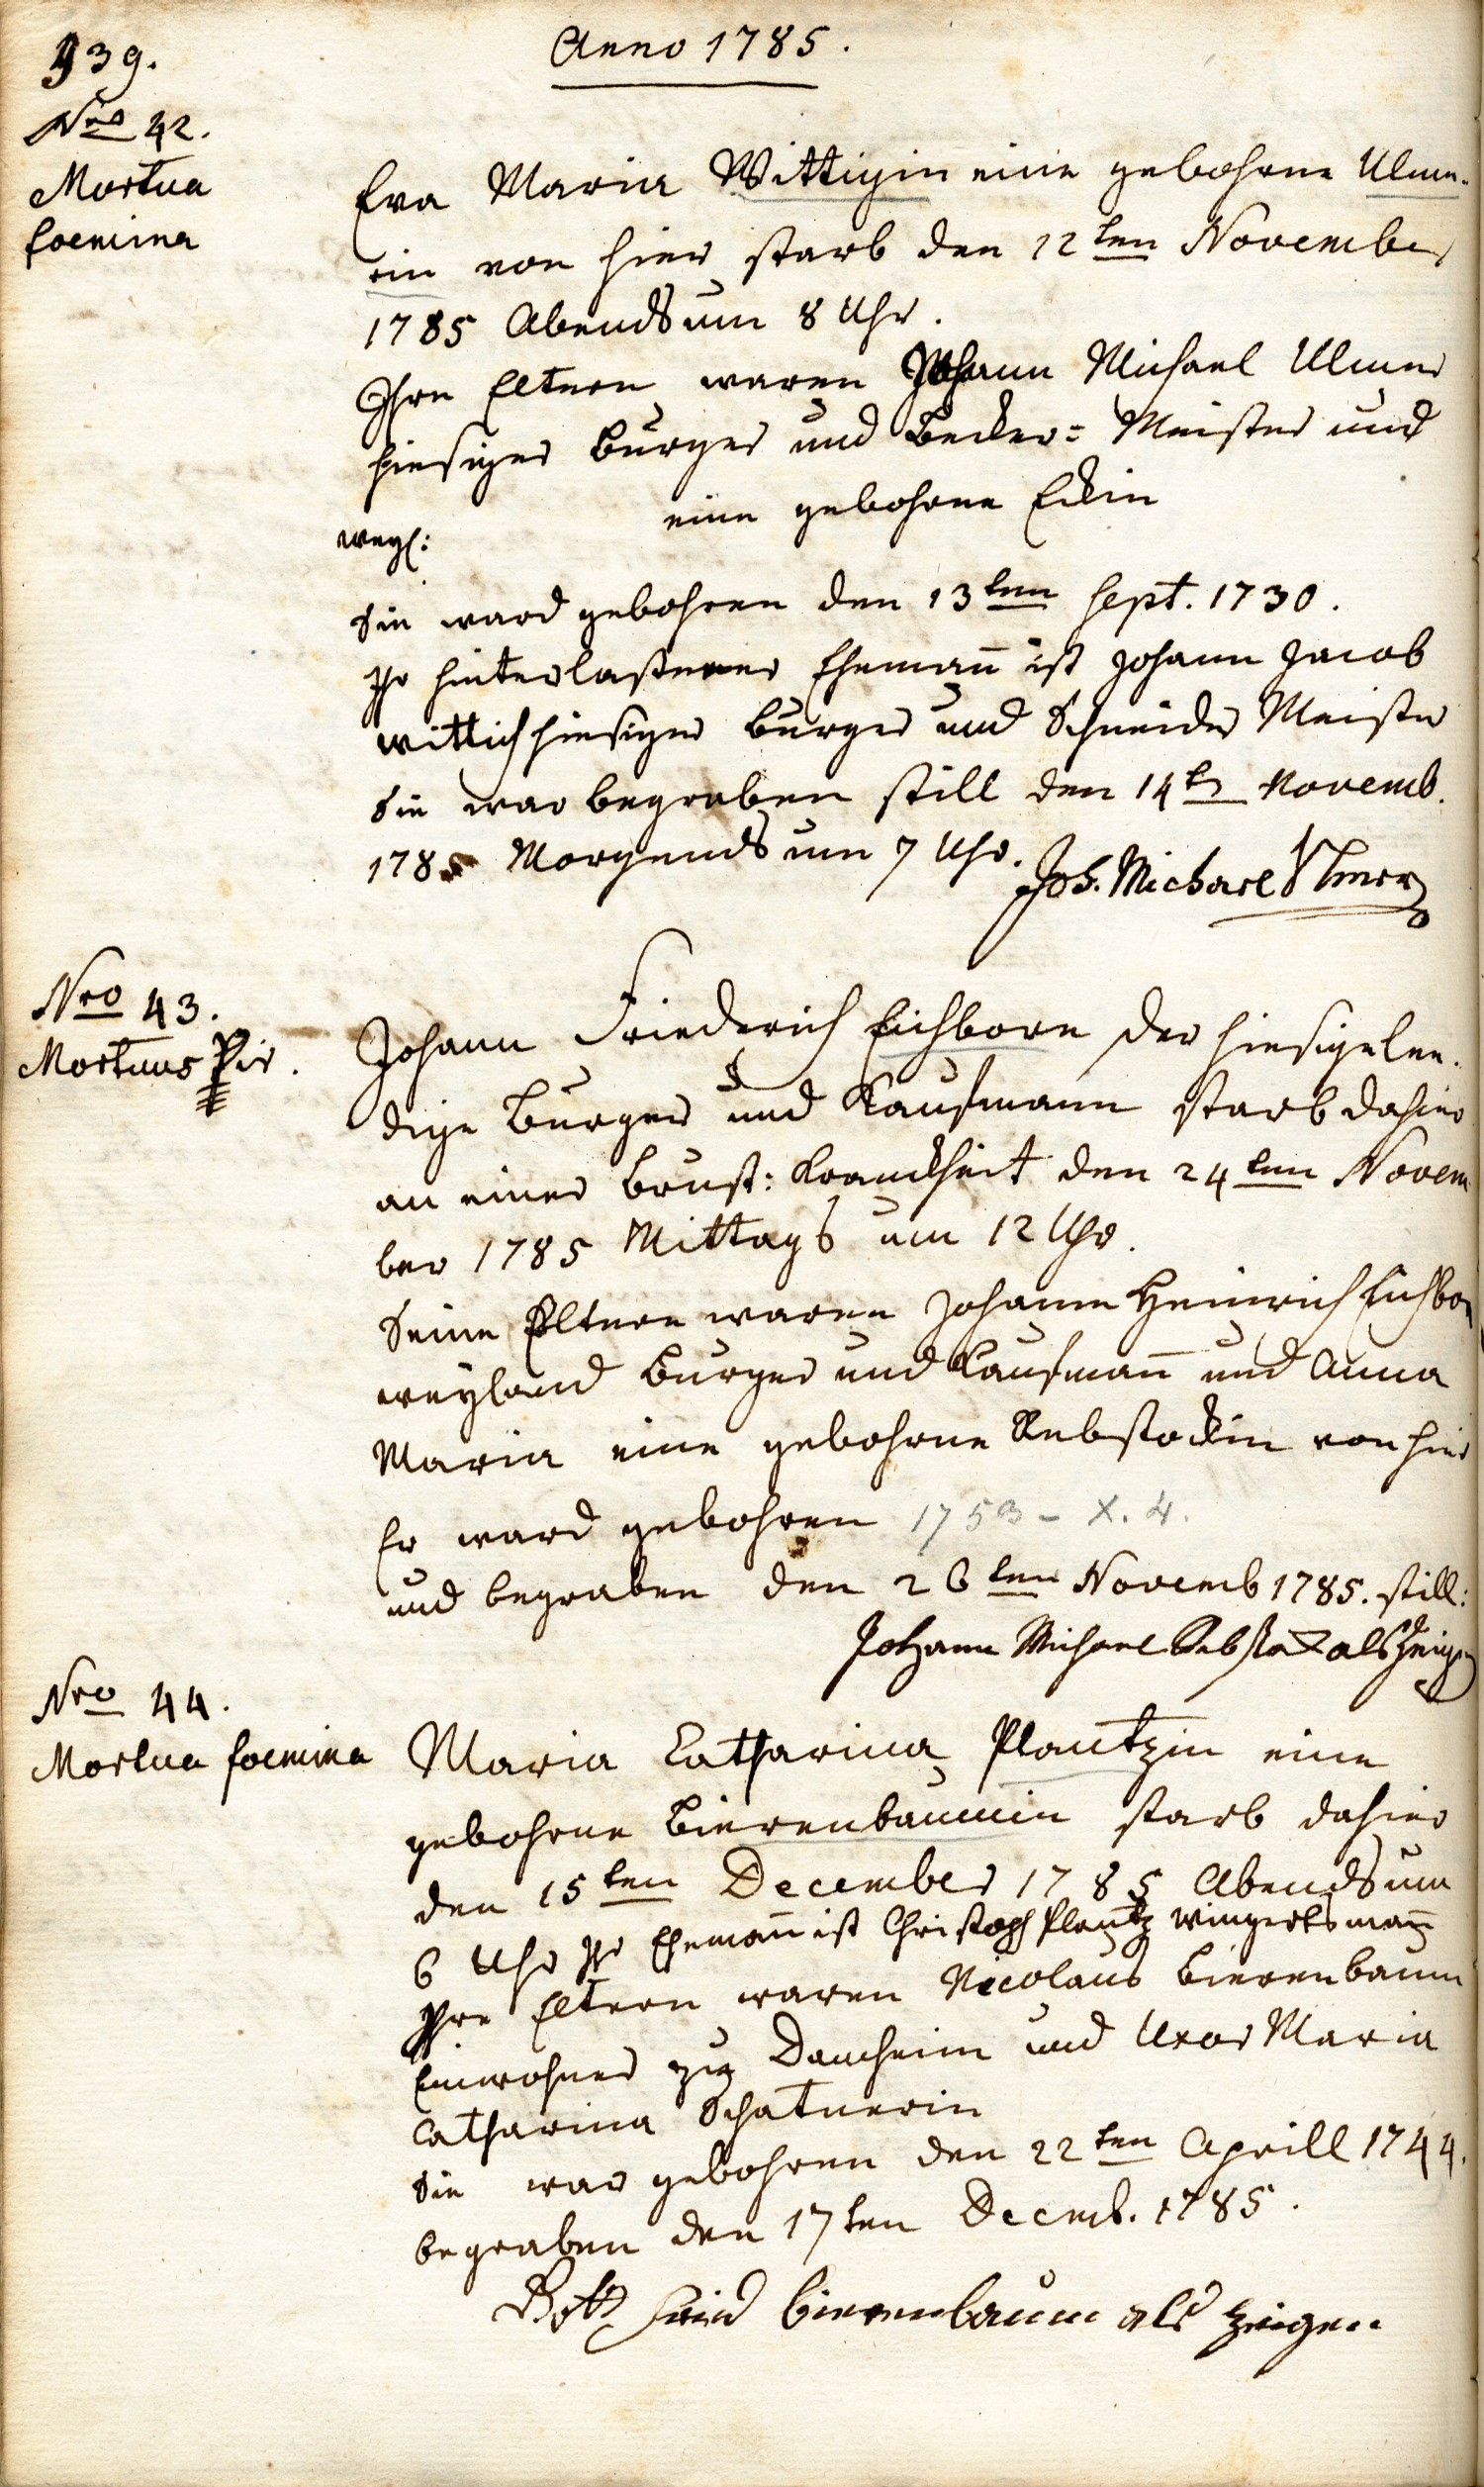 939.
Anno 1785.
Nro 42.
Mortua
foemina
Eva Maria Wittigin eine gebohrne Ulme-
rin von hier starb den 12ten November
1785 Abends um 8 Uhr.
Ihre Eltern waren Johann Michael Ulmer
hiesiger Burger und Becker= Meister und
weyl: eine gebohrne Eckin
Sie ward gebohren den 13ten Sept. 1730.
Ihr hinterlaßener Ehemañ ist Johann Jacob
Wittich hiesiger Burger und Schneider Meister
Sie war begraben still den 14ten Novemb.
1785 Morgends um 7 Uhr.
Joh. Michael Ulmer
Nro 43.
Mortuus Vir.
Johann Friederich Eichborn der hiesige le
dige Burger und Kaufmann starb dahier
an einer Brust: Kranckheit den 24ten Novem
ber 1785 Mittags um 12 Uhr.
Seine Eltern waren Johann Heinrich Eichborn
weyland Burger und Kaufmañ und Anna
Maria eine gebohrne Rebstockin von hier
Er ward gebohren 1753 - X. 4.
und begraben den 26ten Novemb 1785. still:
Johann Michael Rebstock als Zeigen
Nro 44.
Mortua foemina
Maria Catharina Plautzin eine
gebohrne Bierenbaumin starb dahier
den 15ten December 1785 Abends um
6 Uhr Ihr Ehemañ ist Christoph Plautz Wingertsmañ
Ihre Eltern waren Nicolaus Bierenbaum
Einwohner zu Dauchheim und Uxor Maria
Catharina Schatnerin
Sie war gebohren den 22ten Aprill 1744.
begraben den 17ten Decmb. 1785.
Gottfried Bierenbaum als Zeigen